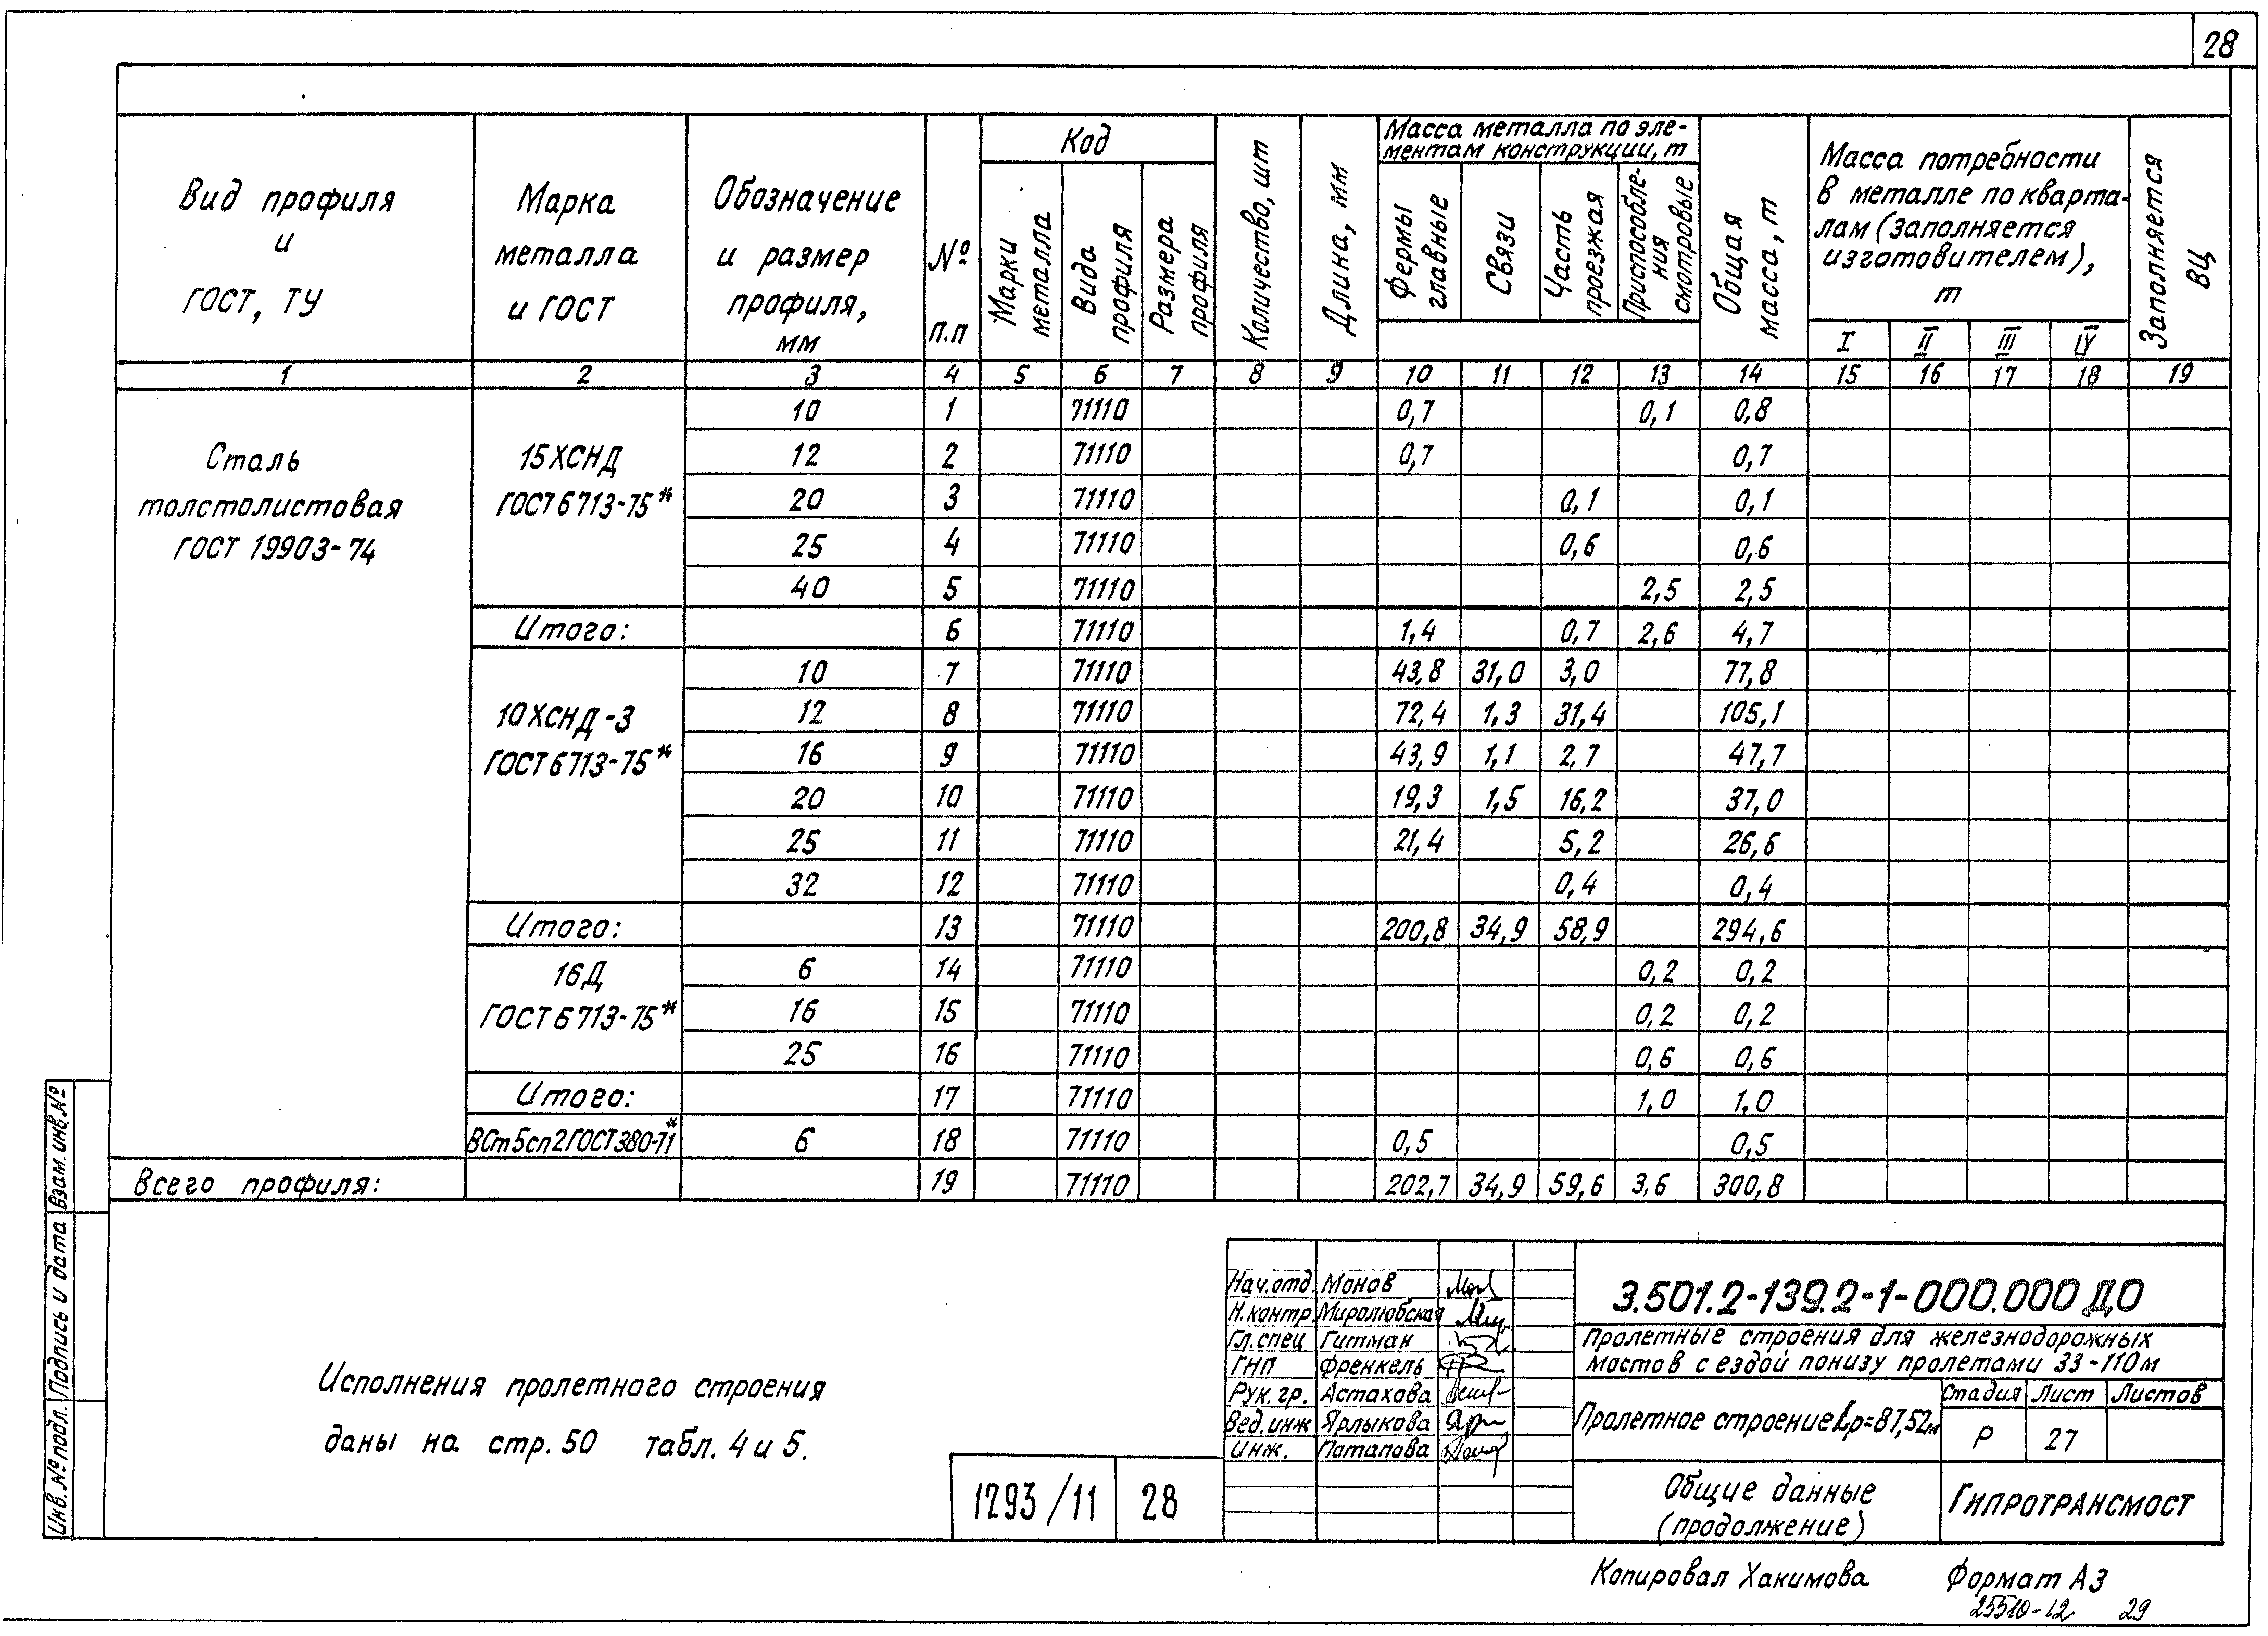 28
Вид профиля и ГОСТ, ТУ
Марка металла и ГОСТ
Обозначение и размер профиля, мм
№ п.п
Код
Марки металла
Вида профиля
Размера профиля
Количество, шт
Длина, мм
Масса металла по элементам конструкции, т
Фермы главные
Связи
Часть проезжая
Приспособления смотровые
Общая масса, т
Масса потребности в металле по кварталам (заполняется изготовителем), т
I II III IV
Заполняется ВЦ
1 2 3 4 5 6 7 8 9 10 11 12 13 14 15 16 17 18 19
Сталь толстолистовая ГОСТ 19903-74
15ХСНД ГОСТ 6713-75*
10 1 71110 0,7 0,1 0,8
12 2 71110 0,7 0,7
20 3 71110 0,1 0,1
25 4 71110 0,6 0,6
40 5 71110 2,5 2,5
Итого: 6 71110 1,4 0,7 2,6 4,7
10ХСНД-3 ГОСТ 6713-75*
10 7 71110 43,8 31,0 3,0 77,8
12 8 71110 72,4 1,3 31,4 105,1
16 9 71110 43,9 1,1 2,7 47,7
20 10 71110 19,3 1,5 16,2 37,0
25 11 71110 21,4 5,2 26,6
32 12 71110 0,4 0,4
Итого: 13 71110 200,8 34,9 58,9 294,6
16Д ГОСТ 6713-75*
6 14 71110 0,2 0,2
16 15 71110 0,2 0,2
25 16 71110 0,6 0,6
Итого: 17 71110 1,0 1,0
ВСт5сп2 ГОСТ 380-71* 6 18 71110 0,5 0,5
Всего профиля: 19 71110 202,7 34,9 59,6 3,6 300,8
Исполнения пролетного строения
даны на стр. 50 табл. 4 и 5.
Инв. № подл. Подпись и дата Взам. инв. №
1293/11 28
Нач. отд. Монов
Н. контр. Миролюбская
Гл. спец Гитман
ГИП Френкель
Рук. гр. Астахова
Вед. инж Ярлыкова
Инж. Потапова
3.501.2-139.2-1-000.000 ДО
Пролетные строения для железнодорожных
мостов с ездой понизу пролетами 33-110 м
Пролетное строение Lр=87,52м
Стадия Лист Листов
Р 27
Общие данные
(продолжение)
Гипротрансмост
Копировал Хакимова Формат А3
25510-12 29